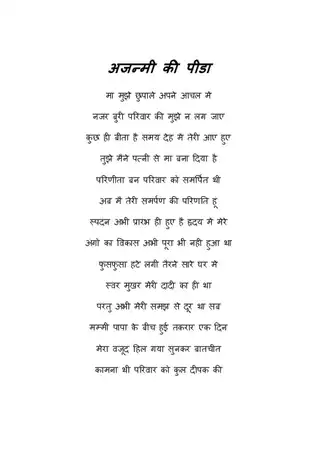 अजन्मी की पीडा
मा मुझे छुपाले अपने आचल मे
नजर बुरी परिवार की मुझे न लग जाए
कुछ ही बीता है समय देह मे तेरी आए हुए
तुझे मैंने पत्नी से मा बना दिया है
परिणीता बन परिवार को समर्पित थी
अब मै तेरी समर्पण की परिणति हूं
स्पदन अभी प्रारभ ही हुए है ह्रदय मे मेरे
अंगो का विकास अभी पूरा भी नही हुआ था
फुसफुसा हटे लगी तैरने सारे घर मे
स्वर मुखर मेरी दादी का ही था
परतु अभी मेरी समझ से दूर था सब
मम्मी पापा के बीच हुई तकरार एक दिन
मेरा वजूद हिल गया सुनकर बातचीत
कामना थी परिवार को कुल दीपक की